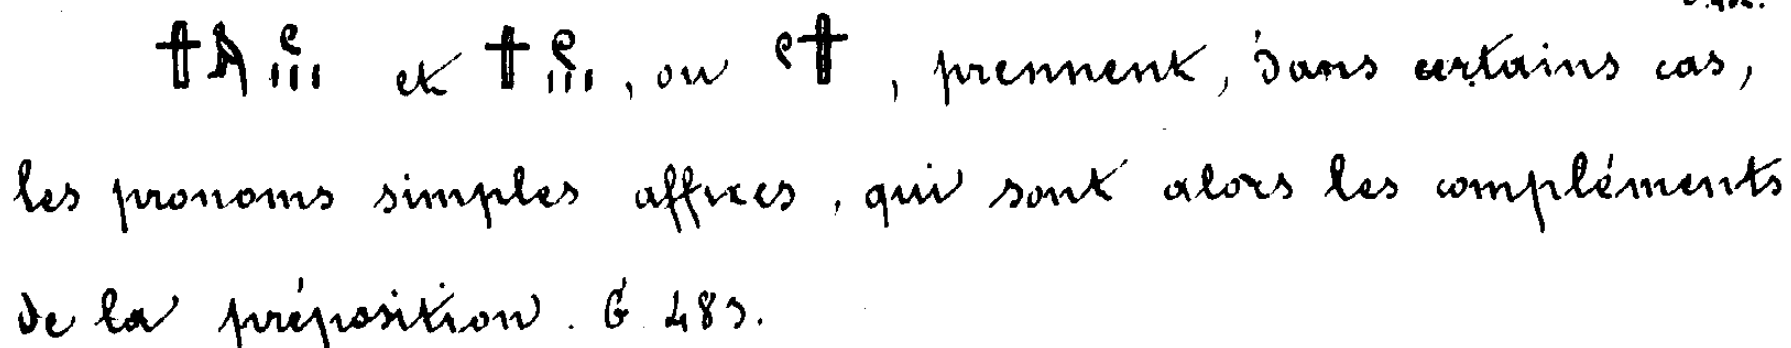 et , ou , prennent, dans certains cas,
les pronoms simples affixes, qui sont alors les compléments
de la préposition. G 483.